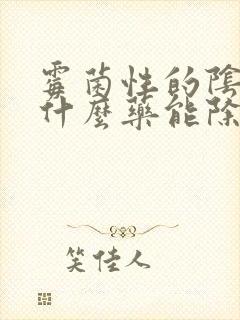 霉菌性的陰
什麼藥能除
笑佳人